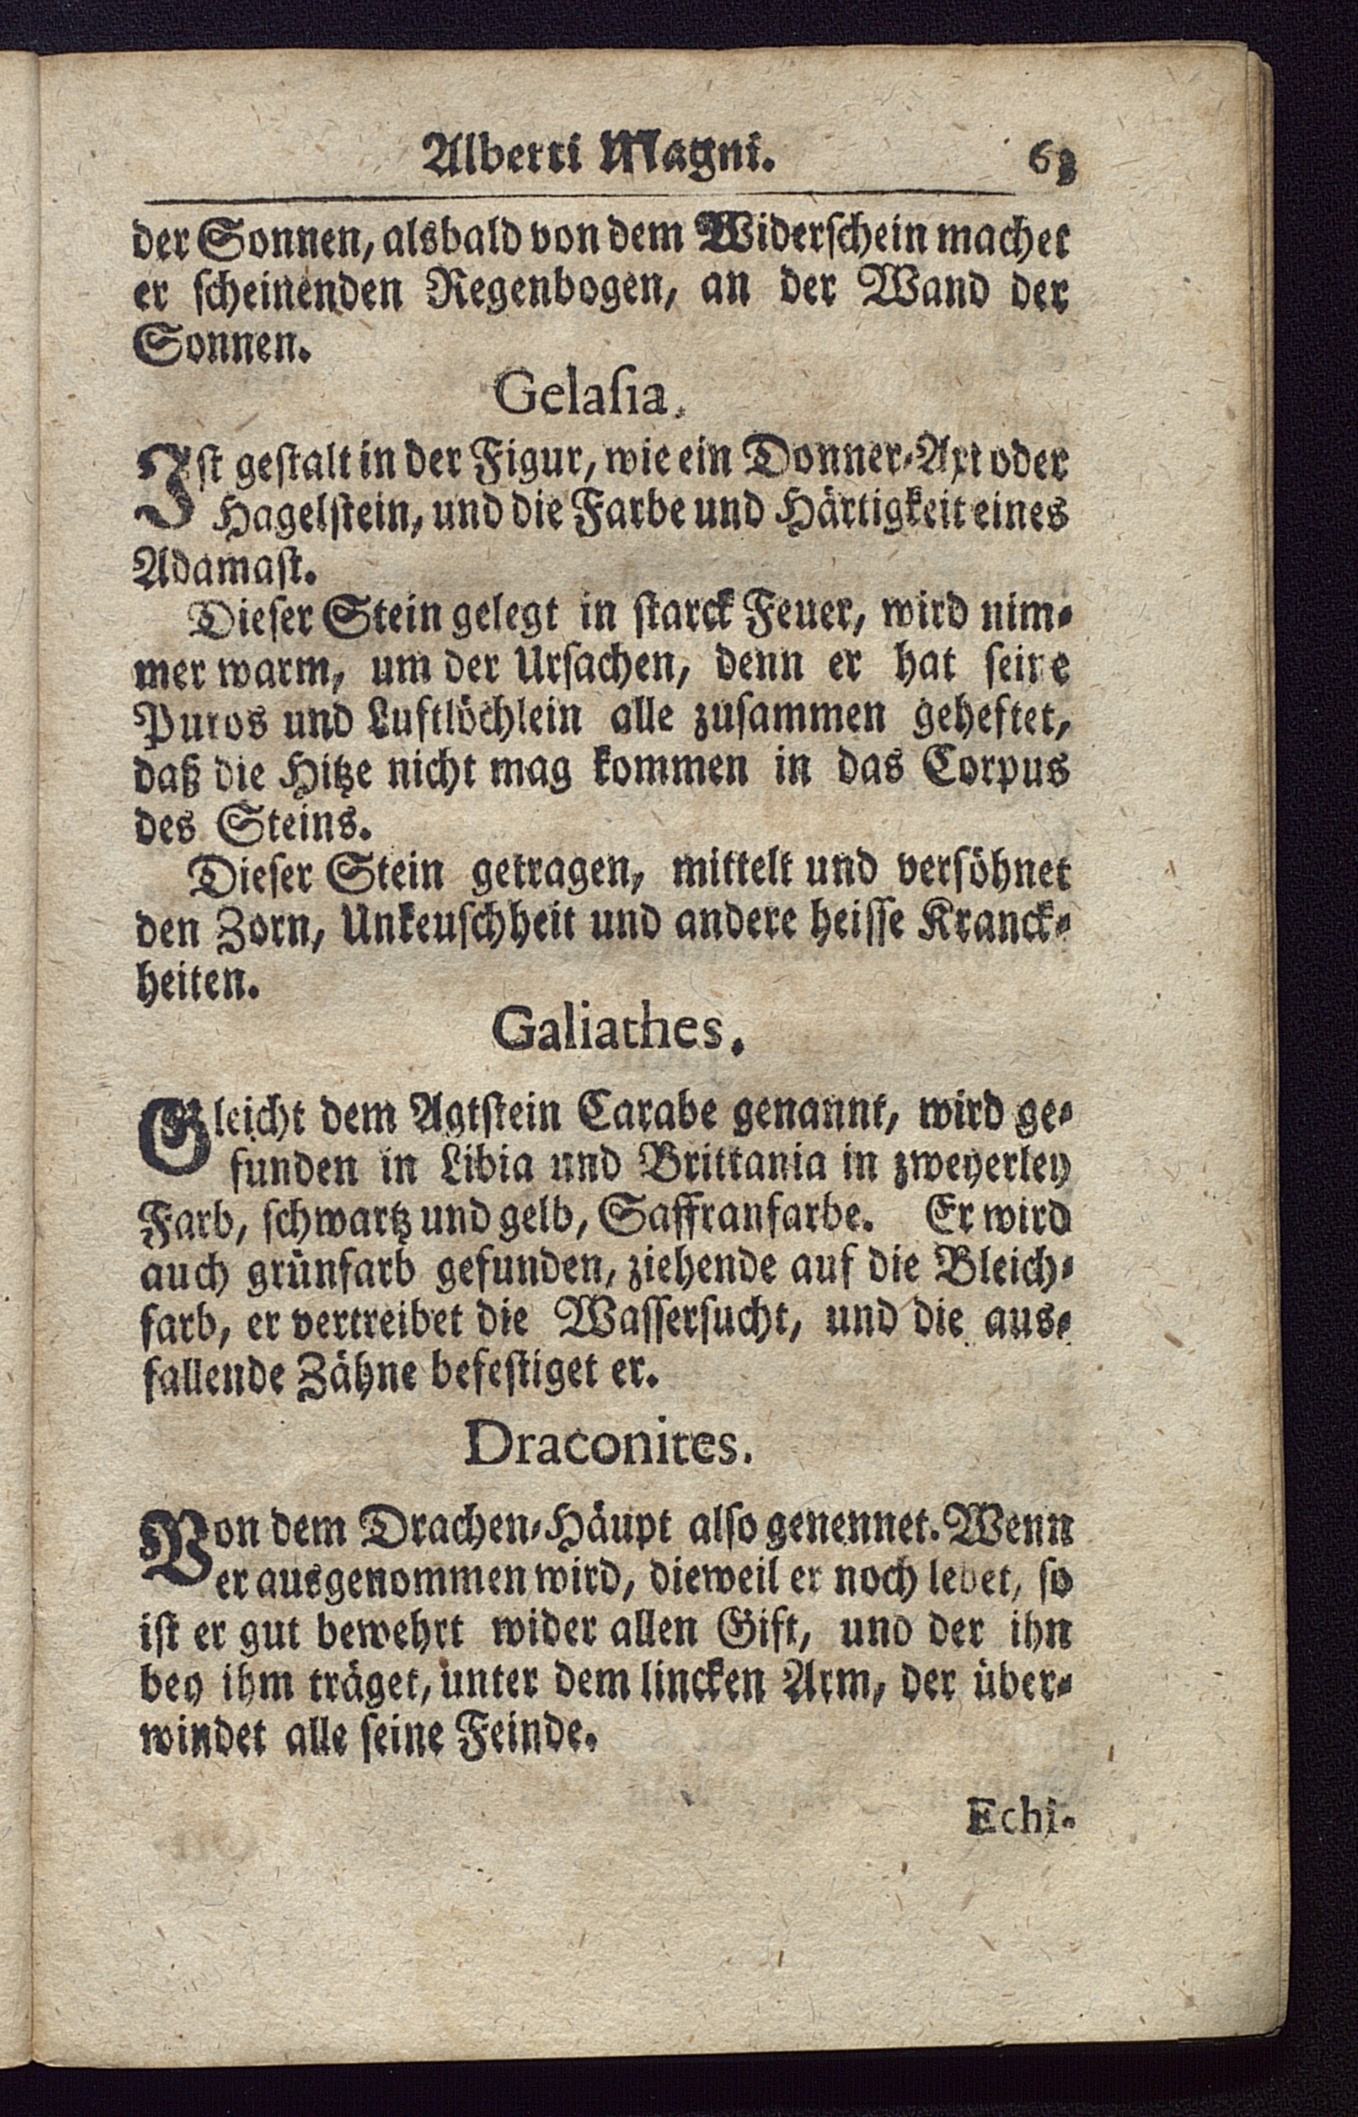 Alberti Magni. 63
der Sonnen, alsbald von dem Widerschein machet
er scheinenden Regenbogen, an der Wand der
Sonnen.
Gelaſia.
Ist gestalt in der Figur, wie ein Donner-Axt oder
Hagelstein, und die Farbe und Härtigkeit eines
Adamast.
Dieser Stein gelegt in starck Feuer, wird nim-
mer warm, um der Ursachen, denn er hat seine
Puros und Luftlöchlein alle zusammen geheftet,
daß die Hitze nicht mag kommen in das Corpus
des Steins.
Dieser Stein getragen, mittelt und versöhnet
den Zorn, Unkeuschheit und andere heisse Kranck-
heiten.
Galiathes.
Gleicht dem Agtstein Carabe genannt, wird ge-
funden in Libia und Brittania in zweyerley
Farb, schwartz und gelb, Saffranfarbe. Er wird
auch grünfarb gefunden, ziehende auf die Bleich-
farb, er vertreibet die Wassersucht, und die aus-
fallende Zähne befestiget er.
Draconites.
Von dem Drachen-Häupt also genennet. Wenn
er ausgenommen wird, dieweil er noch lebet, so
ist er gut bewehrt wider allen Gift, und der ihn
bey ihm träget, unter dem lincken Arm, der über-
windet alle seine Feinde.
Echi-